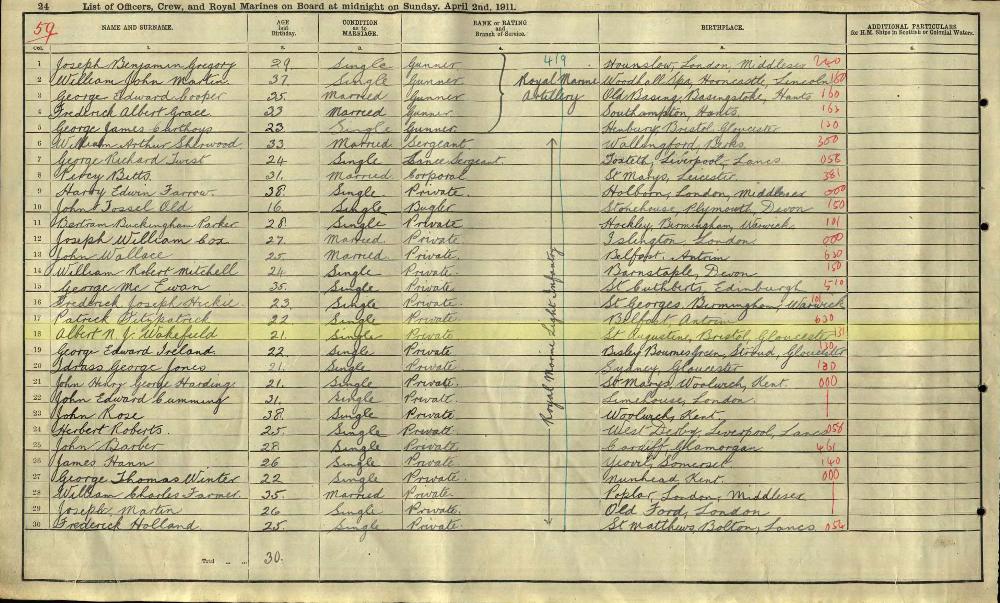 24 List of Officers, Crew, and Royal Marines on Board at midnight on Sunday, April 2nd, 1911.
59
NAME AND SURNAME. AGE last Birthday. CONDITION as to MARRIAGE. RANK or RATING and Branch of Service. BIRTHPLACE. ADDITIONAL PARTICULARS for H.M. Ships in Scottish or Colonial Waters.
Col. 1. 2. 3. 4. 5. 6.
1 Joseph Benjamin Gregory 29 Single Gunner 419 Hounslow, London, Middlesex
2 William John Martin 37 Single Gunner Royal Marine Woodhall Spa, Horncastle, Lincoln
3 George Edward Cooper 25 Married Gunner Artillery Old Basing, Basingstoke, Hants 160
4 Frederick Albert Grace 33 Married Gunner Southampton, Hants.
5 George James Carthoys 23 Single Gunner Henbury, Bristol, Gloucester 130
6 William Arthur Sherwood 33 Married Sergeant Wallingford, Berks 300
7 George Richard Twist 24 Single Lance Sergeant Toxteth, Liverpool, Lancs 056
8 Percy Betts 31. Married Corporal St Marys, Leicester 381
9 Harry Edwin Farrow 38. Single Private. Holborn, London, Middlesex 000
10 John Fossel Old 16. Single Bugler Stonehouse, Plymouth, Devon 150
11 Bertram Buckingham Parker 28. Single Private Hockley, Birmingham, Warwick 101
12 Joseph William Cox 27. Married Private. Islington, London 000
13 John Wallace 25. Married Private. Belfast, Antrim 630
14 William Robert Mitchell 24 Single Private. Barnstaple, Devon 150
15 George Mc Ewan 35. Single Private. St Cuthberts, Edinburgh 510
16 Frederick Joseph Hickie 23. Single Private. St Georges, Birmingham, Warwick 101
17 Patrick Fitzpatrick 22 Single Private Belfast, Antrim 630
18 Albert N. J. Wakefield 21 Single Private St Augustine, Bristol, Gloucester 131
19 George Edward Ireland 22 Single Private. Bisley Bournes Green, Stroud, Gloucester 130
20 Idrass George Jones 21. Single Private. Lydney, Gloucester 130
21 John Henry George Harding 21. Single Private. St Marys, Woolwich, Kent. 000
22 John Edward Cumming 31. Single Private. Limehouse, London.
23 John Rose 38. Single Private. Woolwich, Kent.
24 Herbert Roberts. 25. Single Private. West Derby, Liverpool, Lancs 056
25 John Barber 28 Single Private. Cardiff, Glamorgan 461
26 James Hann 26 Single Private. Yeovil, Somerset 140
27 George Thomas Winter 22 Single Private. Nunhead, Kent. 000
28 William Charles Farmer. 35. Married Private. Poplar, London, Middlesex
29 Joseph Martin 26 Single Private. Old Ford, London
30 Frederick Holland 25. Single Private. St Matthews, Bolton, Lancs 056
Royal Marine Light Infantry
Total 30.